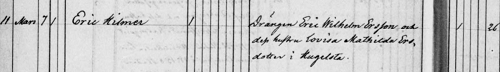 11 Mars 7 1 Eric Hilmer 1 Drängen Eric Wilhelm Ersson, och 1 26
dess hustru Lovisa Mathilda Ers-
dotter i Hugelsta.